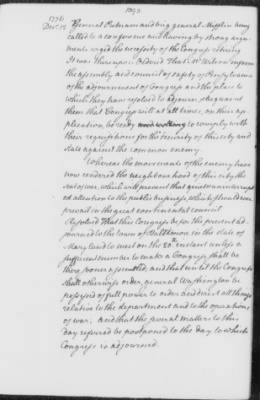 1776
Decr. 12
General Putnam and brig. general Mifflin being
called to a conference and having by strong argu-
ments urged the necessity of the Congress retiring
It was thereupon Ordered That Mr. Wilson inform
the assembly and council of safety of Pensylvania
of the adjournment of Congress and the place to
which they have resolved to adjourn & to assure
them that Congress will at all times, on their ap-
plication, be ready to comply with
their requisitions for the security of this city and
state against the common enemy.
Whereas the movements of the enemy have
now rendered the neighbourhood of this city the
seat of war, which will prevent that quiet and uninterrupt-
ed attention to the public business, which should ever
prevail in the great continental council
Resolved That this Congress be for the present ad-
journed to the town of Baltimore in the state of
Maryland to meet on the 20th instant unless a
sufficient number to make a Congress shall be
there sooner assembled, and that until the Congress
shall otherwise order, general Washington be
possessed of full power to order and direct all things
relative to the department and to the operations
of war; and that the several matters to this
day referred be postponed to the day to which
Congress is adjourned.